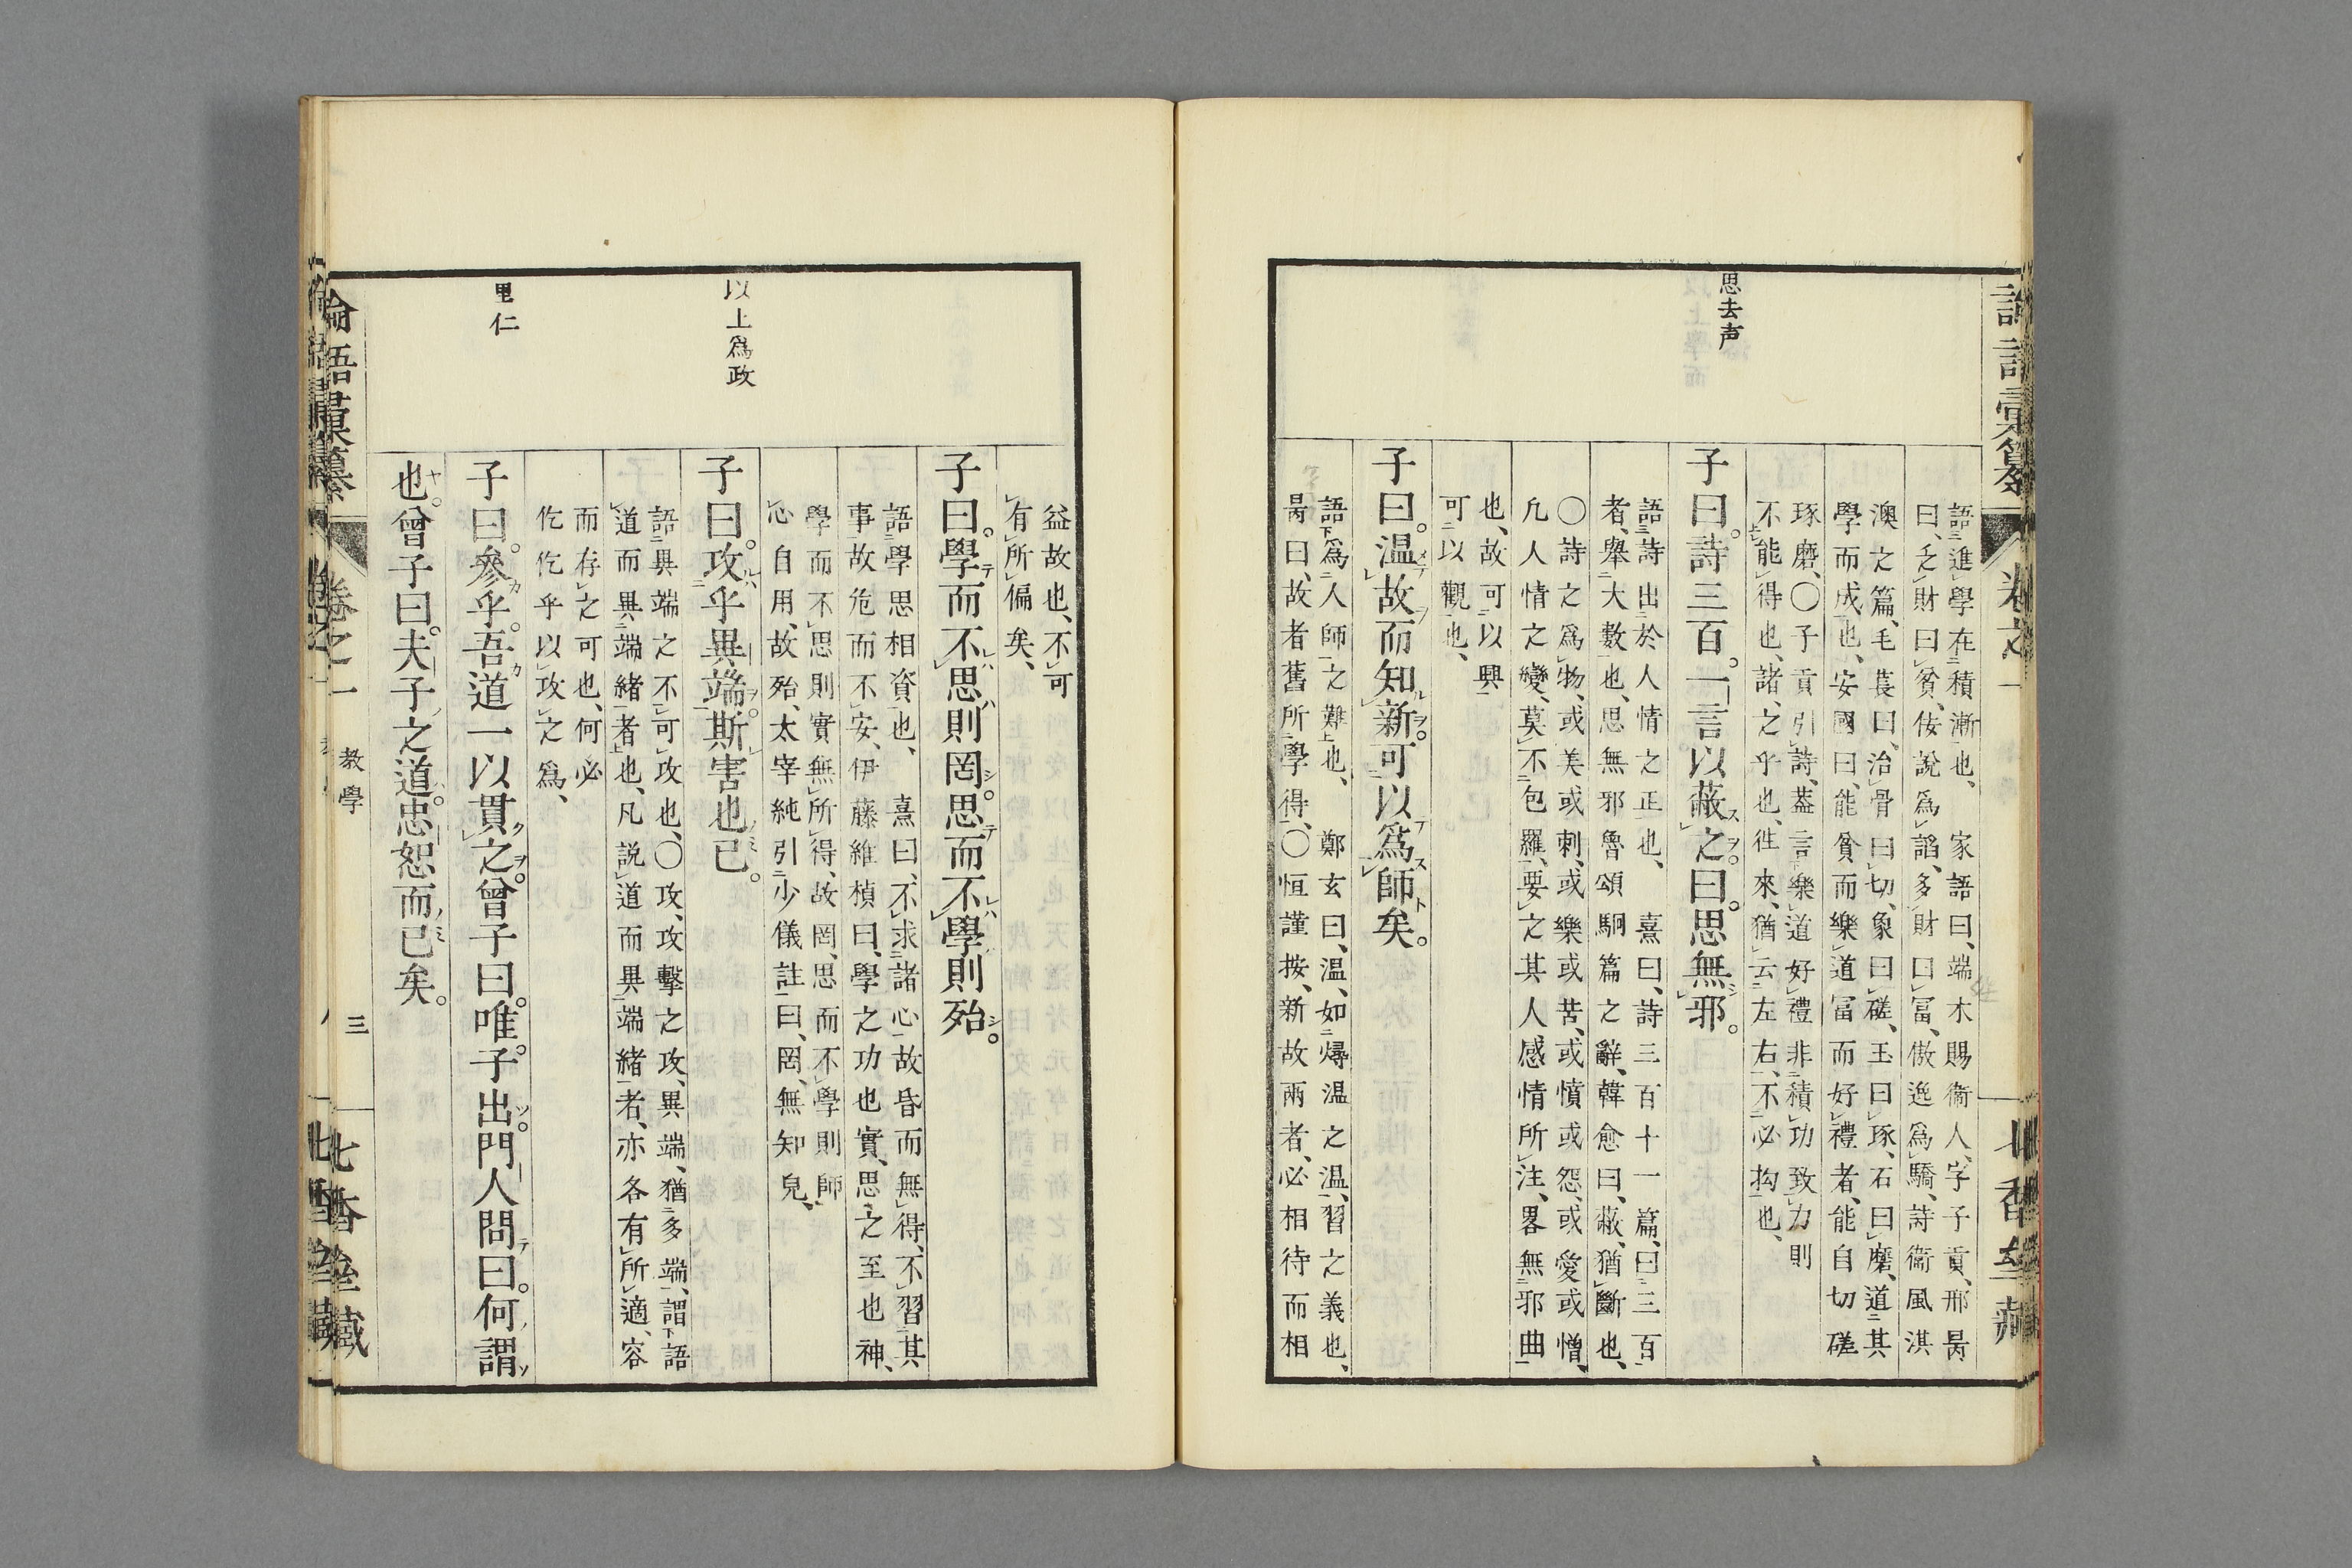 思去声
語進學在積漸也、家語曰、端木賜衞人、字子貢、邢昺
曰、乏財曰貧、佞說爲諂、多財曰冨、傲逸爲驕、詩衞風淇
澳之篇、毛萇曰、治骨曰切、象曰磋、玉曰琢、石曰磨、道其
學而成也、安國曰、能貧而樂道冨而好禮者、能自切磋
琢磨、〇子貢引詩、葢言樂道好禮非積功致力則
不能得也、諸、之乎也、徃來、猶云左右、不必拘也、
子曰。詩三百。一言以蔽之。曰。思無邪。
語詩出於人情之正也、熹曰、詩三百十一篇、曰三百
者、舉大數也、思無邪魯頌駉篇之辭、韓愈曰、蔽、猶斷也、
〇詩之爲物、或美或刺、或樂或苦、或憤或怨、或愛或憎、
凢人情之變、莫不包羅、要之其人感情所注、畧無邪曲
也、故可以興
可以觀也、
子曰。温故而知新。可以爲師矣。
語爲人師之難也、鄭玄曰、温、如燖温之温、習之義也、
昺曰、故者舊所學得、〇恒謹按、新故兩者、必相待而相
以上爲政
里仁
益故也、不可
有所偏矣、
子曰。學而不思則罔。思而不學則殆。
語學思相資也、熹曰、不求諸心故昏而無得、不習其
事故危而不安、伊藤維楨曰、學之功也實、思之至也神、
學而不思則實無所得、故罔、思而不學則師
心自用、故殆、太宰純引少儀註曰、罔、無知皃、
子曰。攻乎異端。斯害也已。
語異端之不可攻也、〇攻、攻擊之攻、異端、猶多端、謂語
道而異端緒者也、凡説道而異端緒者、亦各有所適、容
而存之可也、何必
仡仡乎以攻之爲、
子曰。參乎。吾道一以貫之。曾子曰。唯。子出。門人問曰。何謂
也。曾子曰。夫子之道。忠恕而已矣。
論語彙纂 卷之一 教學 三 七香齋藏